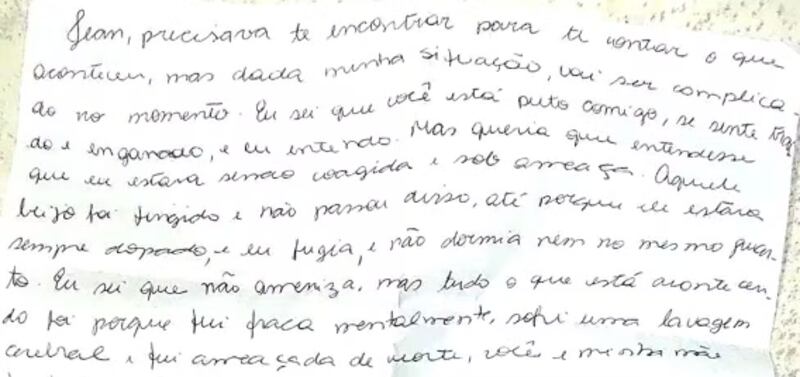 Jean, precisava te encontrar para te contar o que
aconteceu, mas dada minha situação, vai ser complica-
do no momento. Eu sei que você está puto comigo, se sente traí
do e enganado, e eu entendo. Mas queria que entendesse
que eu estava sendo coagida e sob ameaça. Aquele
beijo foi fingido e não passou disso, até porque ele estava
sempre dopado, e eu fugia, e não dormia nem no mesmo quar-
to. Eu sei que não ameniza, mas tudo o que está acontecen-
do foi porque fui fraca mentalmente, sofri uma lavagem
cerebral e fui ameaçada de morte, você e minha mãe